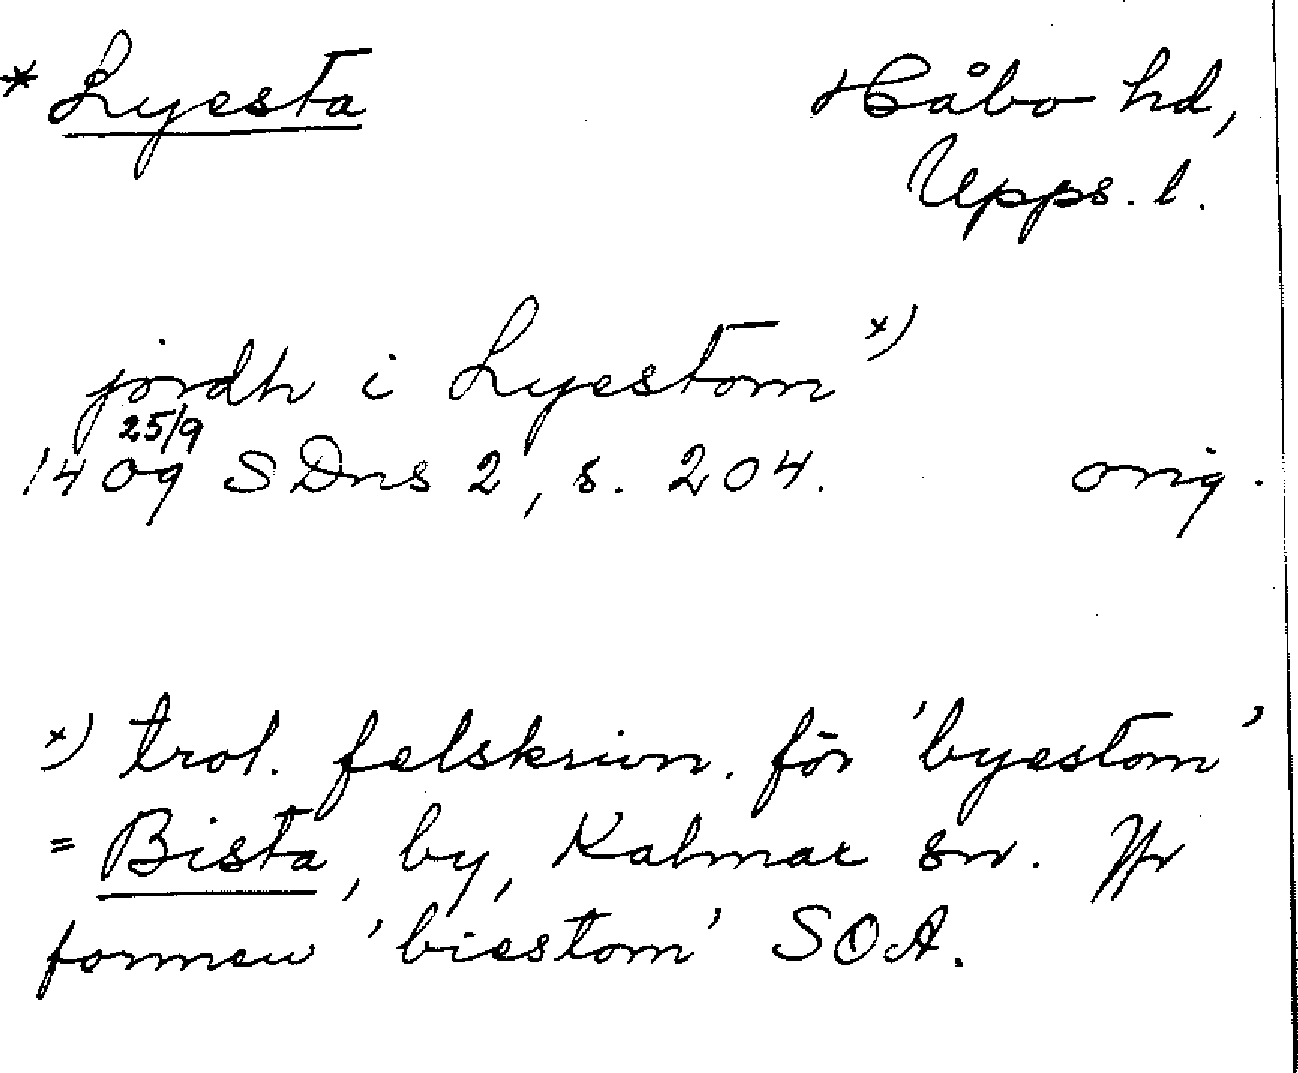 * Lyesta
Håbo hd,
Upps. l.
jordh i Lyestom x)
25/9
1409 SDns 2, s. 204. orig.
x) trol. felskrivn. för 'byestom'
= Bista, by, Kalmar sn. Jfr
formen 'biestom' SOA.